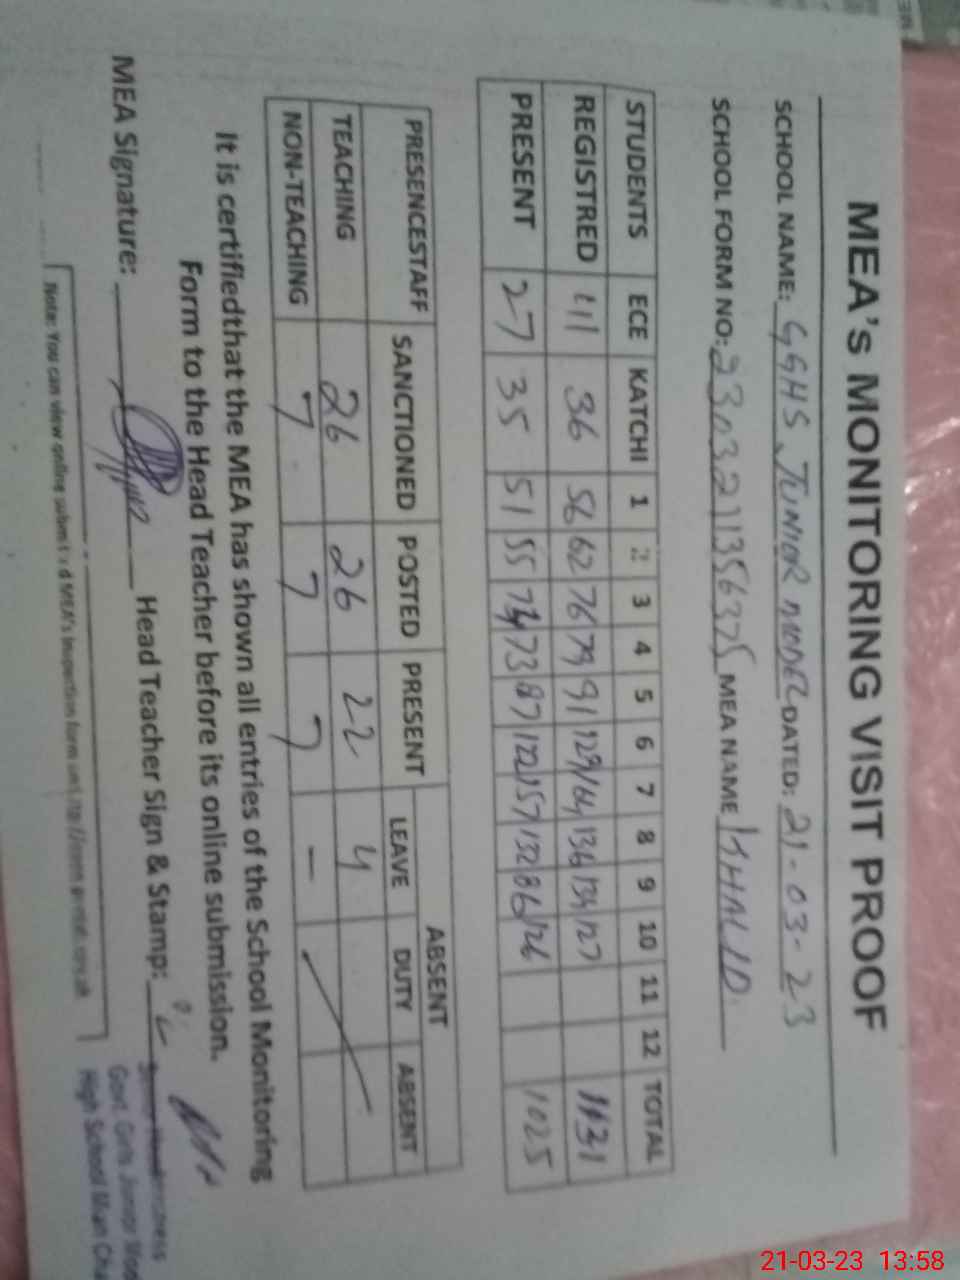 MEA's MONITORING VISIT PROOF
SCHOOL NAME: GGHS JUNIOR MODEL DATED: 21-03-23
SCHOOL FORM NO: MEA NAME KHALID
STUDENTS ECE KATCHI 1 2 3 4 5 6 7 8 9 10 11 12 TOTAL
REGISTRED 111 36 56 62 76 79 91 129 164 136 134 127 1131
PRESENT 27 35 51 55 74 73 87 122 157 132 86 126 1025
PRESENCESTAFF SANCTIONED POSTED PRESENT ABSENT
LEAVE DUTY ABSENT
TEACHING 26 26 22 4
NON-TEACHING 7 7 7 -
It is certifiedthat the MEA has shown all entries of the School Monitoring
Form to the Head Teacher before its online submission.
MEA Signature: Head Teacher Sign & Stamp:
Govt. Girls Junior
High School Mian
Note: You can view online submitted MEA's Inspection form
21-03-23 13:58